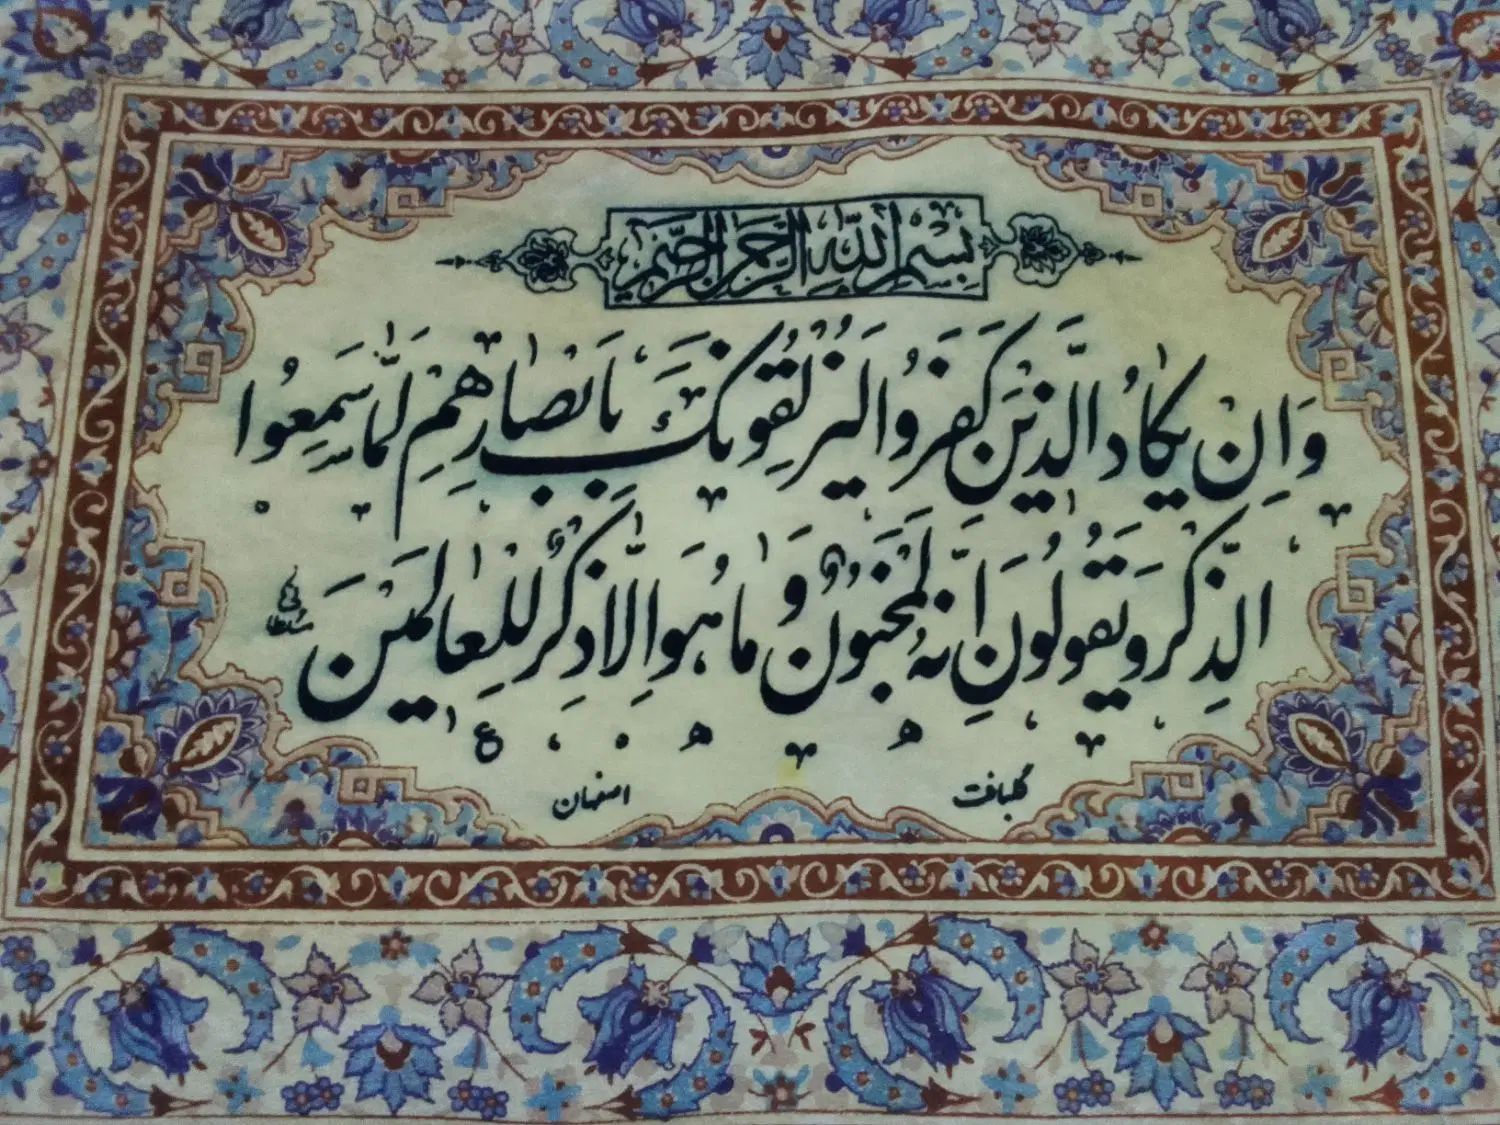 بِسْمِ اللّٰهِ الرَّحْمٰنِ الرَّحِيمِ
وَاِنْ يَكَادُ الَّذِينَ كَفَرُوا لَيُزْلِقُونَكَ بِاَبْصَارِهِمْ لَمَّا سَمِعُوا
الذِّكْرَ وَيَقُولُونَ اِنَّهُ لَمَجْنُونٌ وَمَا هُوَ اِلَّا ذِكْرٌ لِلْعَالَمِينَ
گلبافت اصفهان